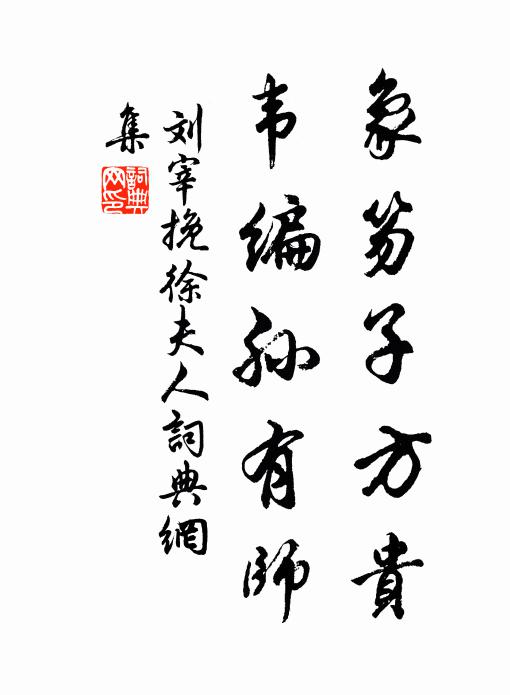 象笏子方貴
韦编孙有師
刘宰挽徐夫人詞典網
集
詞典网印